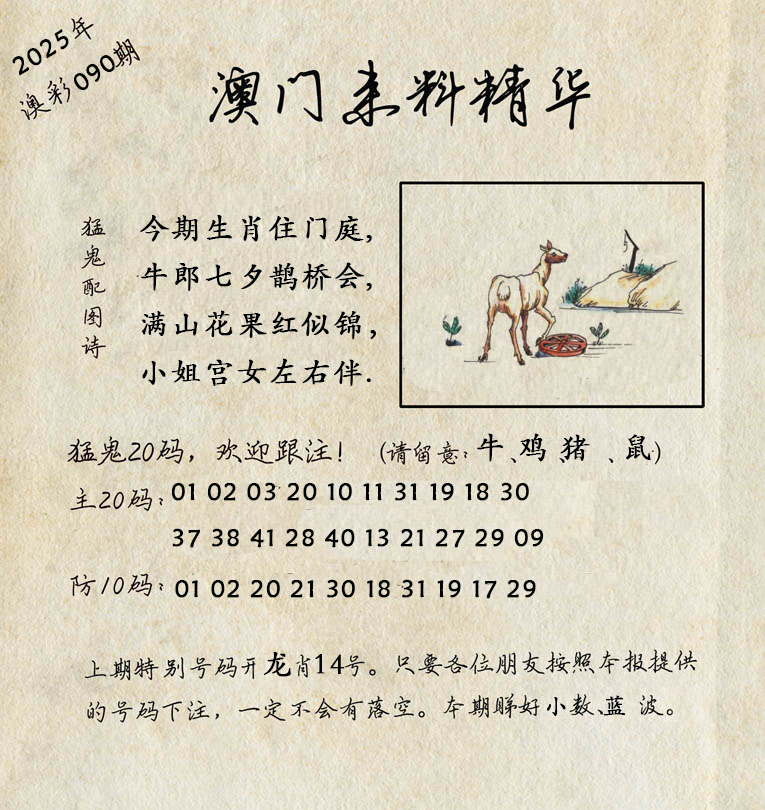 2025年
澳彩090期
澳门来料精华
猛鬼配图诗
今期生肖住门庭,
牛郎七夕鹊桥会,
满山花果红似锦,
小姐宫女左右伴.
猛鬼20码，欢迎跟注！（请留意：牛、鸡 猪 、鼠）
主20码：01 02 03 20 10 11 31 19 18 30
37 38 41 28 40 13 21 27 29 09
防10码：01 02 20 21 30 18 31 19 17 29
上期特别号码开龙肖14号。只要各位朋友按照本报提供
的号码下注，一定不会有落空。本期睇好小数、蓝 波。